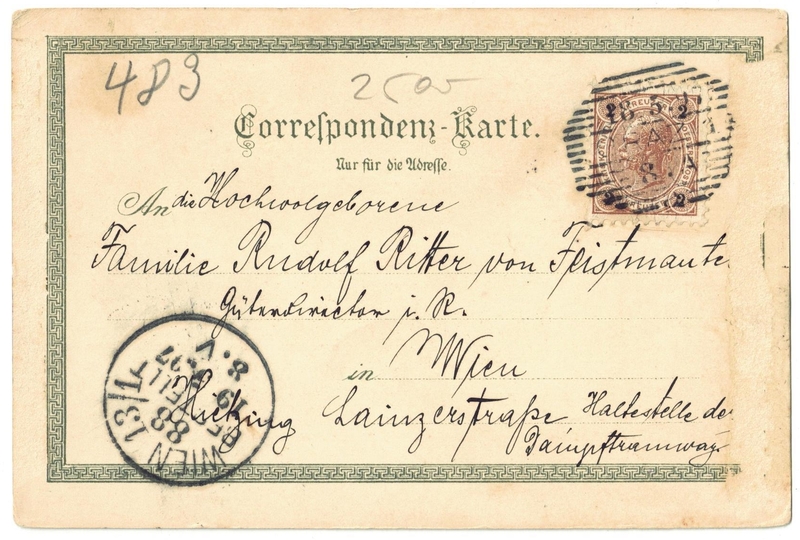 483
2505
Correspondenz-Karte.
Nur für die Adresse.
An die Hochwolgeborene
Familie Rudolf Ritter von Feistmante
Güterdirector i. R.
in Wien
Hietzing Lainzerstraße Haltestelle der
Dampftramway.
2 2
2 2
WIEN 13/1
88
BESTELLT
8. V
97